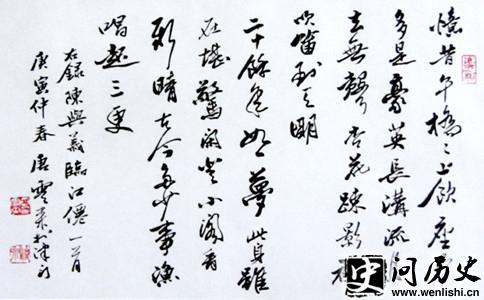 憶昔午橋々上飲座
多是豪英長溝流
去無聲杏花疎影
吹笛到天明
二十餘年如一夢此身雖
在堪驚閑登小閣看
新晴古今多少事漁
唱起三更
右錄陳與義臨江僊一首
庚寅仲春唐雲來於津門
史 问历史
www.wenlishi.cn